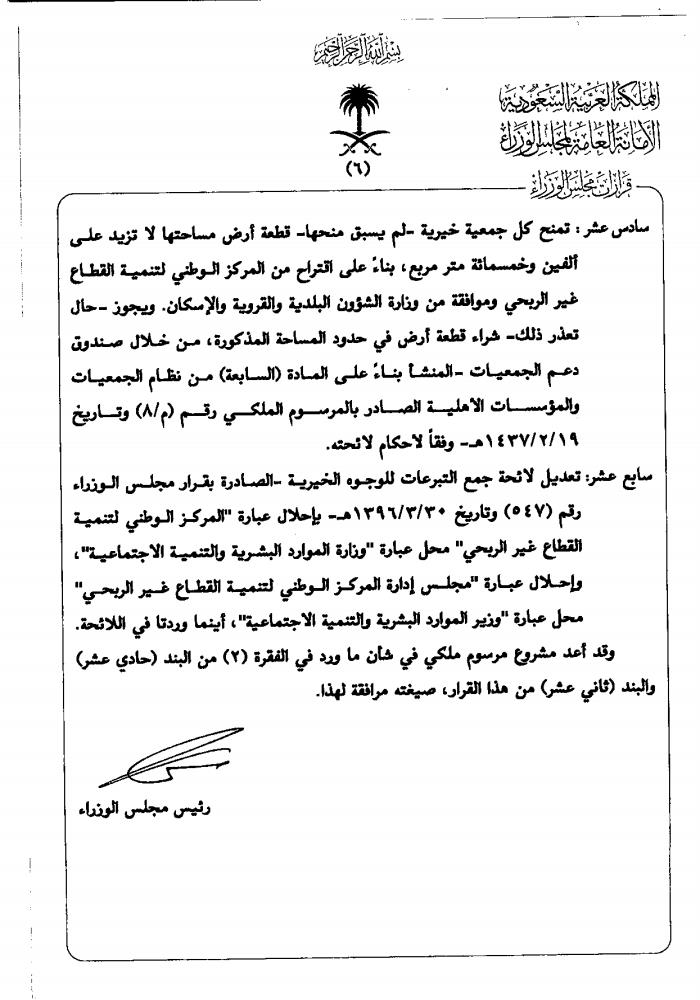 بسم الله الرحمن الرحيم
المملكة العربية السعودية
الأمانة العامة لمجلس الوزراء
(٦)
قرارات مجلس الوزراء
سادس عشر: تمنح كل جمعية خيرية -لم يسبق منحها- قطعة أرض مساحتها لا تزيد على
ألفين وخمسمائة متر مربع، بناءً على اقتراح من المركز الوطني لتنمية القطاع
غير الربحي وموافقة من وزارة الشؤون البلدية والقروية والإسكان. ويجوز -حال
تعذر ذلك- شراء قطعة أرض في حدود المساحة المذكورة، من خلال صندوق
دعم الجمعيات -المنشأ بناءً على المادة (السابعة) من نظام الجمعيات
والمؤسسات الأهلية الصادر بالمرسوم الملكي رقم (م/٨) وتاريخ
١٤٣٧/٢/١٩هـ- وفقاً لأحكام لائحته.
سابع عشر: تعديل لائحة جمع التبرعات للوجوه الخيرية -الصادرة بقرار مجلس الوزراء
رقم (٥٤٧) وتاريخ ١٣٩٦/٣/٣٠هـ- بإحلال عبارة "المركز الوطني لتنمية
القطاع غير الربحي" محل عبارة "وزارة الموارد البشرية والتنمية الاجتماعية"،
وإحلال عبارة "مجلس إدارة المركز الوطني لتنمية القطاع غير الربحي"
محل عبارة "وزير الموارد البشرية والتنمية الاجتماعية"، أينما وردتا في اللائحة.
وقد أعد مشروع مرسوم ملكي في شأن ما ورد في الفقرة (٢) من البند (حادي عشر)
والبند (ثاني عشر) من هذا القرار، صيغته مرافقة لهذا.
رئيس مجلس الوزراء